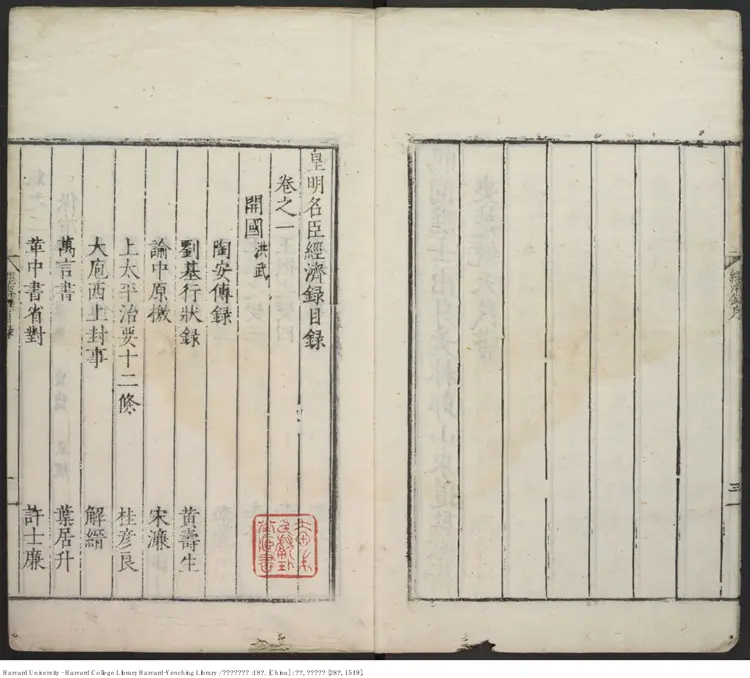 皇明名臣經濟録目録
卷之一
開國 洪武
陶安傳録
劉基行狀録 黃壽生
論中原檄 宋濂
上太平治要十二條 桂彥良
大庖西上封事 解縉
萬言書 葉居升
革中書省對 許士廉
三
Harvard University - Harvard College Library Harvard-Yenching Library / ??????? :18?. [China] : ??, ????? [28?, 1549].